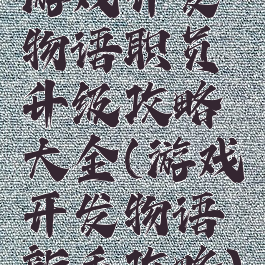 游戏开发
物语职员
升级攻略
大全(游戏
开发物语
新手攻略)